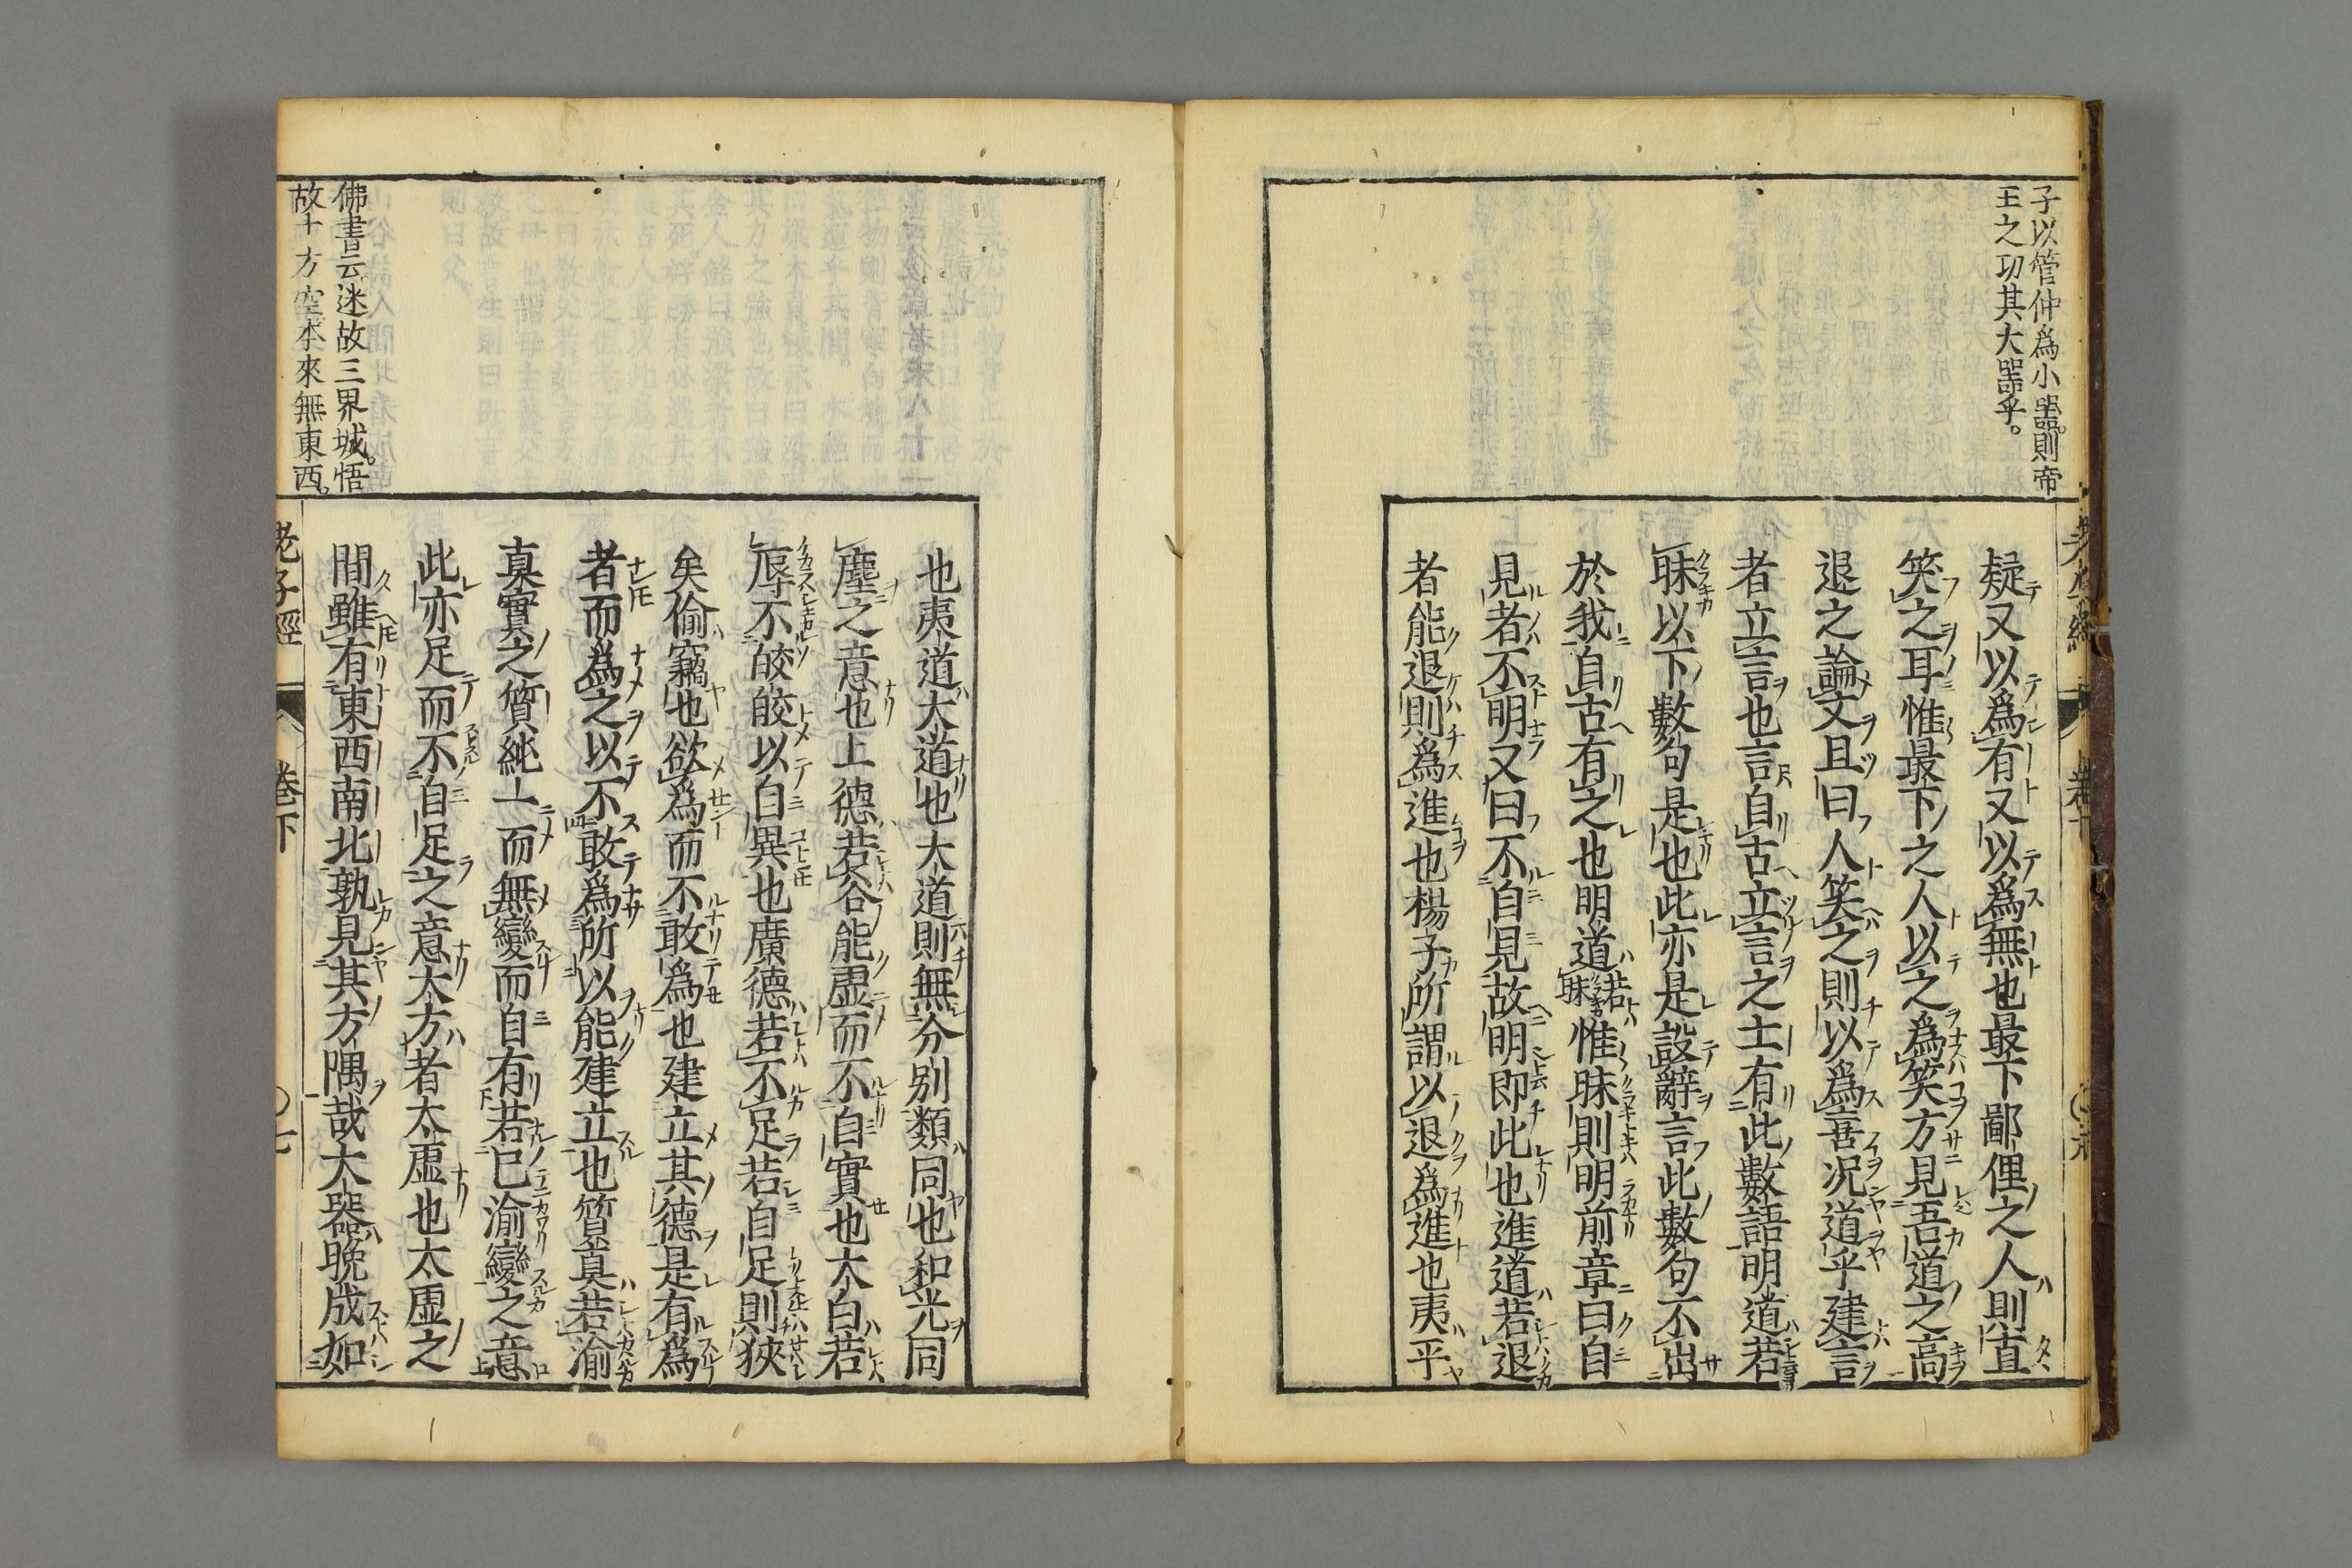 子以管仲爲小器。則帝
王之功其大器乎。
疑又以爲有又以爲無也最下鄙俚之人則直
笑之耳惟最下之人以之爲笑方見吾道之高
退之論文且曰人笑之則以爲喜況道乎建言
者立言也言自古立言之士有此數語明道若
昧以下數句是也此亦是設辭言此數句不出
於我自古有之也明道若昧惟昧則明前章曰自
見者不明又曰不自見故明即此也進道若退
者能退則爲進也楊子所謂以退爲進也夷平
也夷道大道也大道則無分別類同也和光同
塵之意也上德若谷能虛而不自實也太白若
辱不皎皎以自異也廣德若不足若自足則狹
矣偷竊也欲爲而不敢爲也建立其德是有爲
者而爲之以不敢爲所以能建立也質真若渝
真實之質純一而無變而自有若已渝變之意
此亦足而不自足之意大方者太虛也太虛之
間雖有東西南北孰見其方隅哉大器晚成如
佛書云迷故三界城。悟
故十方空本來無東西。
老子經 卷下